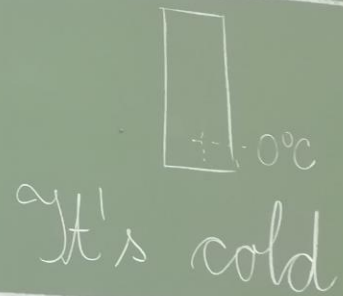 0°C
It's cold